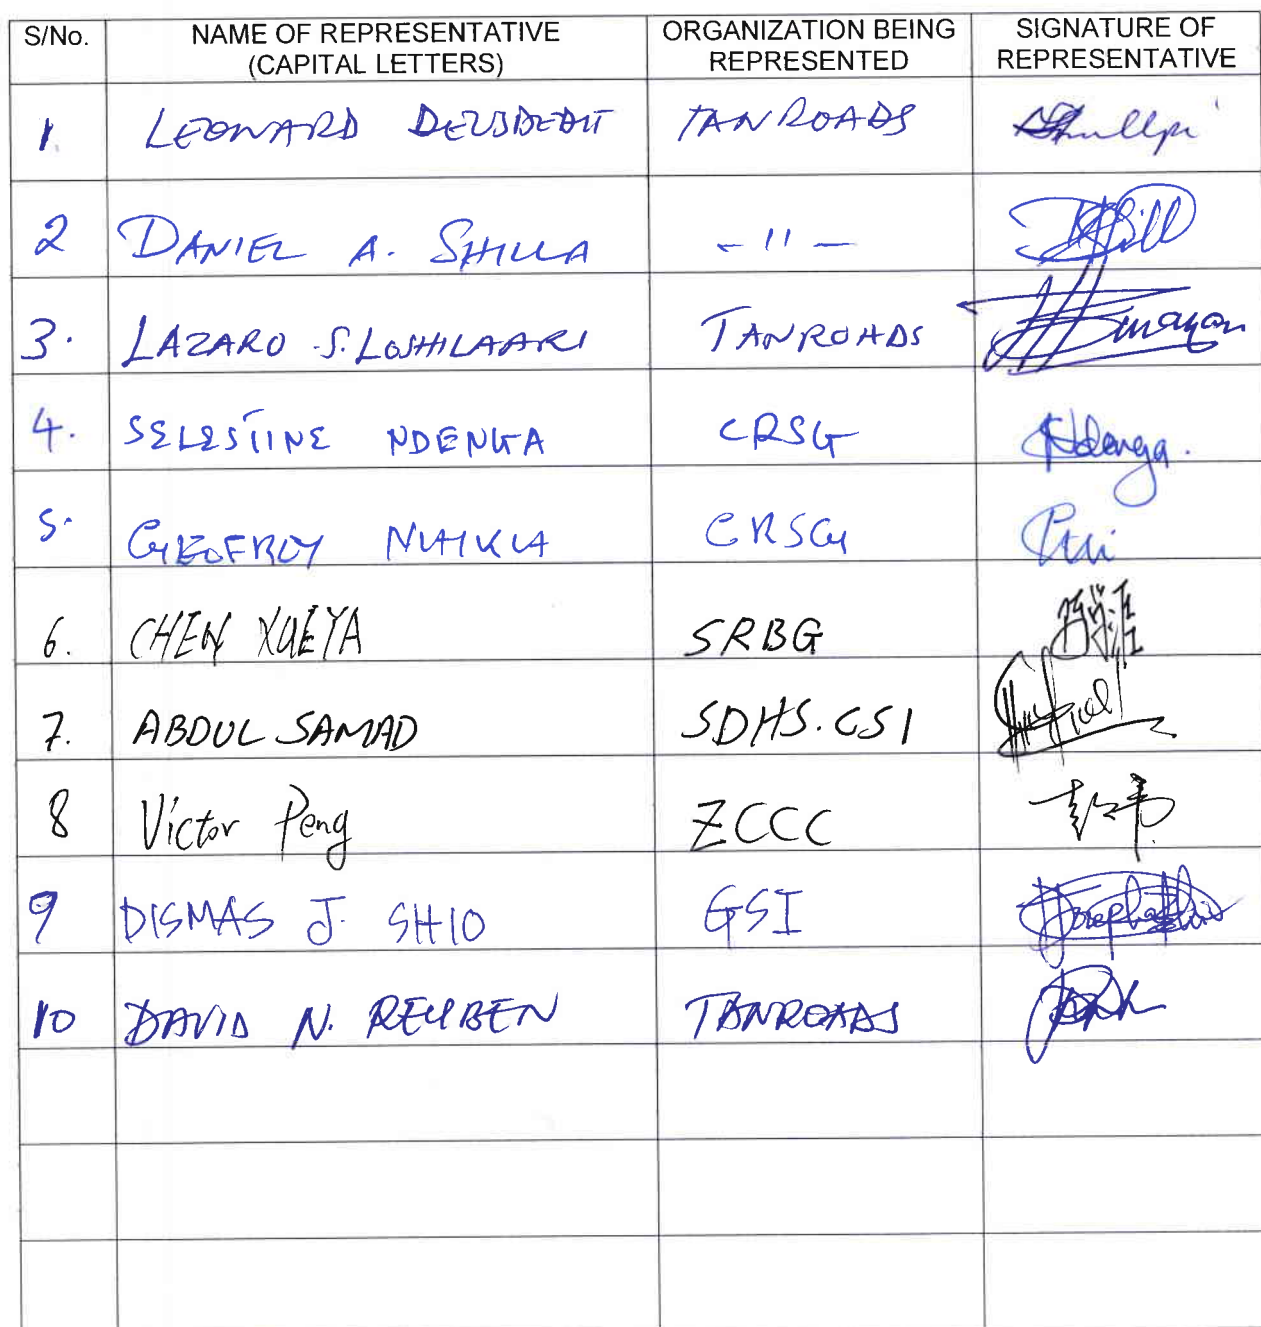 S/No. NAME OF REPRESENTATIVE (CAPITAL LETTERS) ORGANIZATION BEING REPRESENTED SIGNATURE OF REPRESENTATIVE
1. LEONARD DEUSDEDIT TANROADS
2 DANIEL A. SHILLA - 11 -
3. LAZARO S. LOSHILAARI TANROADS
4. SELESTINE NDENGA CRSG Ndenga.
5. GEOFREY CRSG
6. CHEN XUEYA SRBG
7. ABDUL SAMAD SDHS.GSI
8 Victor Peng ZCCC 彭伟
9 DISMAS J. SHIO GSI
10 DAVID N. REUBEN TANROADS